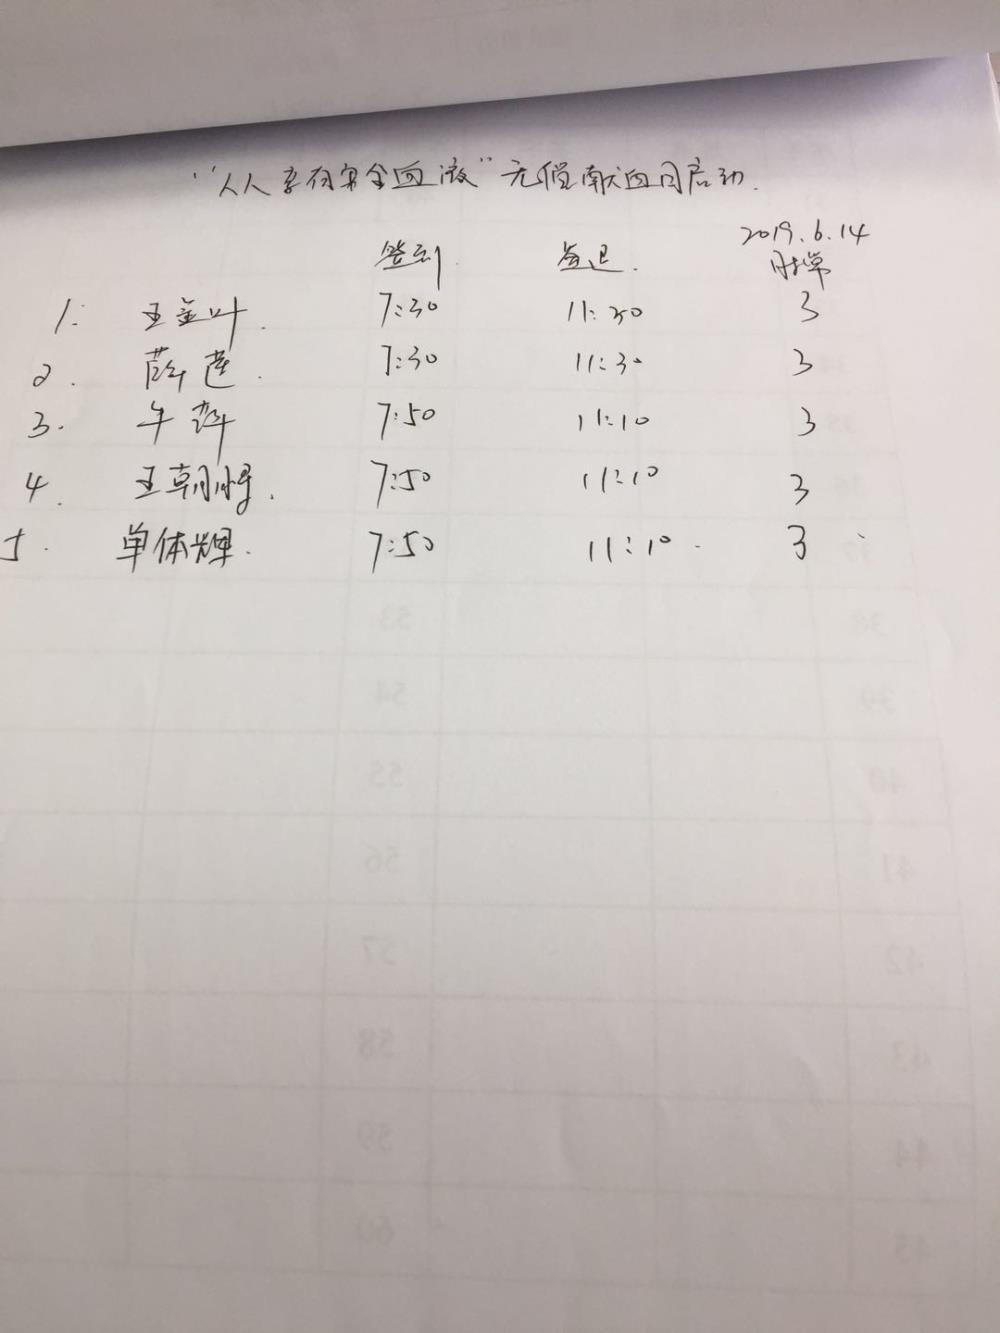 “人人享有安全血液”无偿献血月启动.
2019.6.14
签到 签退. 时常
1. 王金叶. 7:30 11:30 3
2. 薛莲. 7:30 11:30 3
3. 牛 7:50 11:10 3
4. 王朝 7:50 11:10 3
5. 单体辉. 7:50 11:10. 3
53
38
54
39
55
40
56
41
57
42
58
43
59
44
60
45